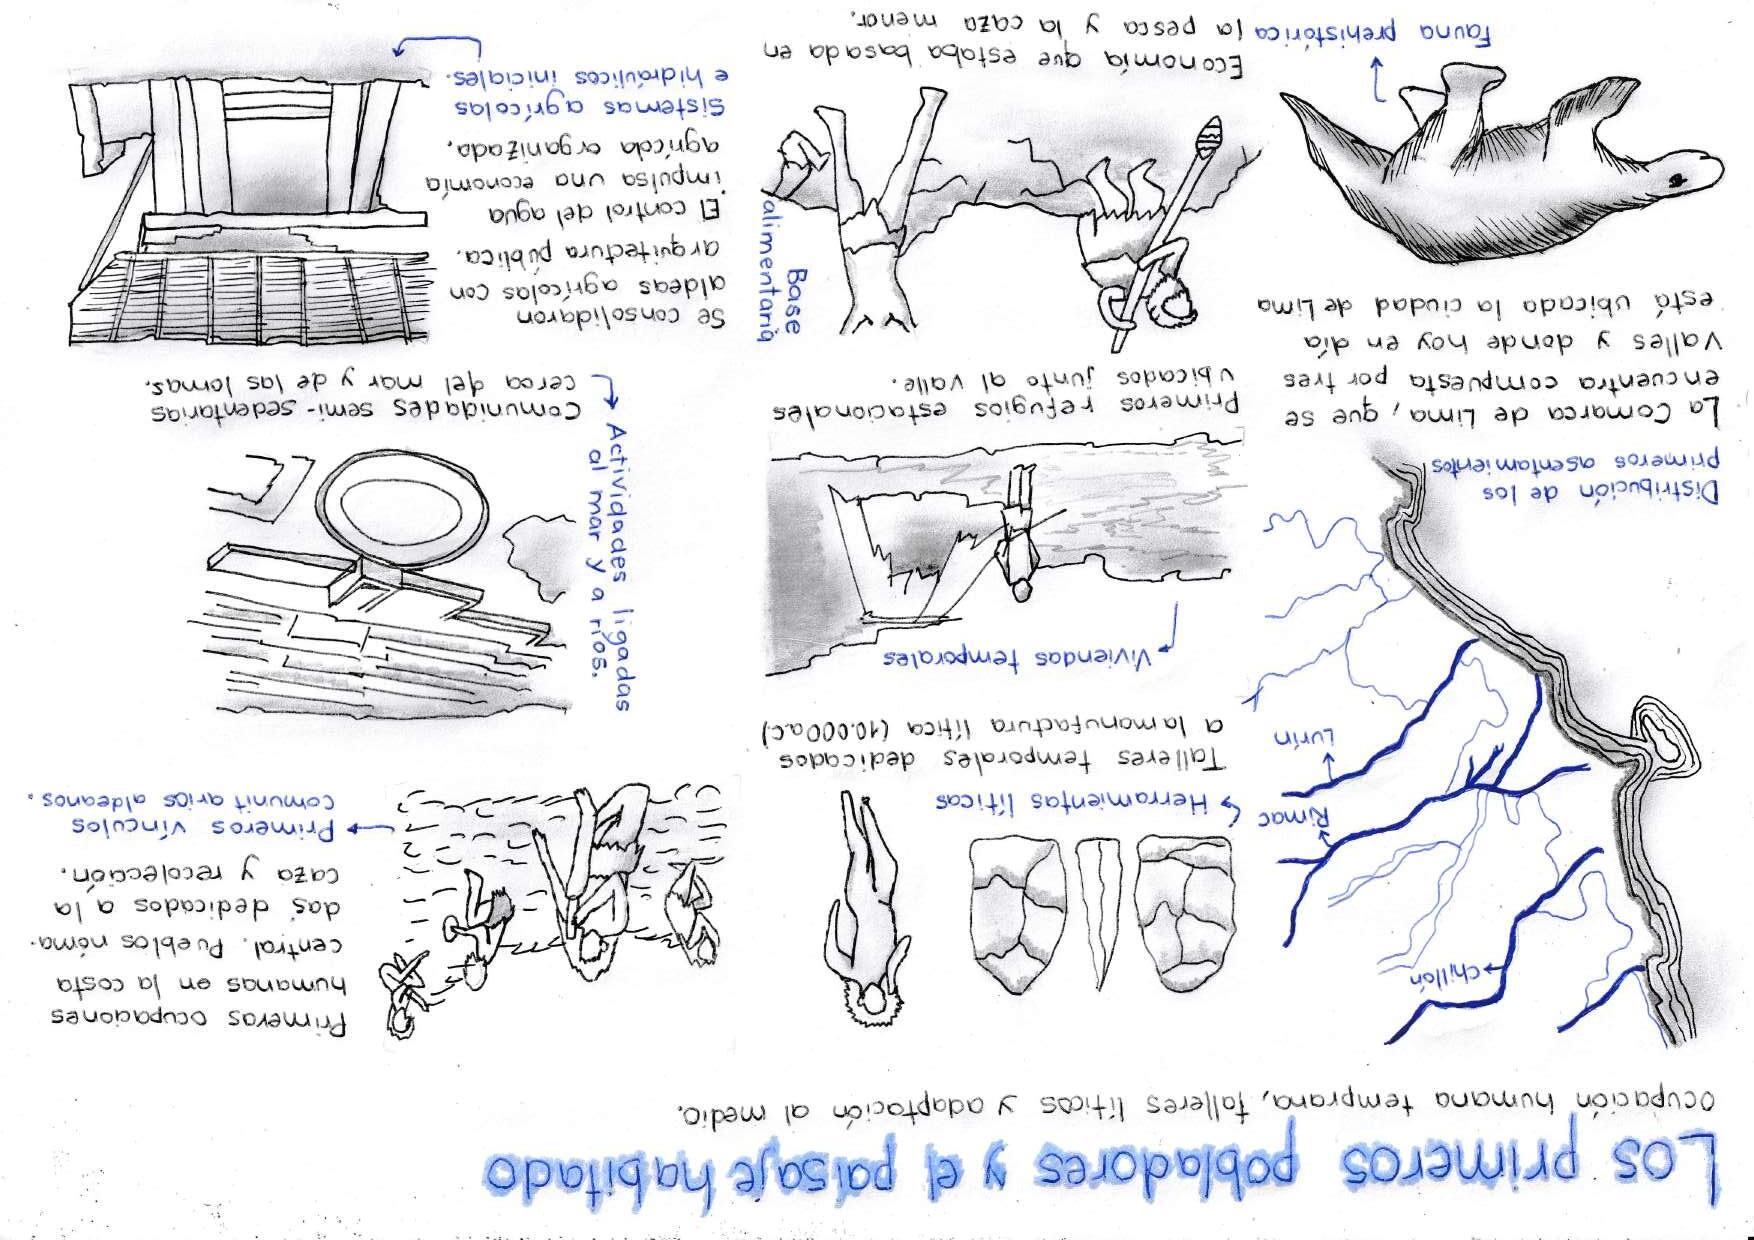 Los primeros pobladores y el paisaje habitado
Ocupación humana temprana, talleres líticos y adaptación al medio.
Chillón
Rimac
Lurín
Distribución de los
primeros asentamientos
La Comarca de Lima, que se
encuentra compuesta por tres
valles y donde hoy en día
está ubicada la ciudad de Lima
Fauna prehistórica
Herramientas líticas
Talleres temporales dedicados
a la manufactura lítica (10.000a.c)
Viviendas temporales
Primeros refugios estacionales
ubicados junto al valle.
Base
alimentaria
Economía que estaba basada en
la pesca y la caza menor.
Primeras ocupaciones
humanas en la costa
central. Pueblos nóma-
das dedicados a la
caza y recolección.
Primeros vínculos
comunitarios aldeanos.
Actividades ligadas
al mar y a ríos.
Comunidades semi-sedentarias
cerca del mar y de las lomas.
Se consolidaron
aldeas agrícolas con
arquitectura pública.
El control del agua
impulsa una economía
agrícola organizada.
Sistemas agrícolas
e hidráulicos iniciales.